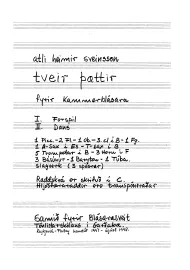 atli heimir SVEINSSON
tveir þættir
fyrir kammerblásara
I. Forspil
II. Dans
1 Picc - 2 Fl - 1 Ob - 3 cl í B - 1 Fg.
1 A-Sax í Es - T-sax í B
5 Trompetar í B - 3 Horn í F
3 Básúnur - 1 Baryton - 1 Túba.
Slagverk (3 spilarar)
Raddskrá er skrifuð í C.
Hljóðfæraraddir eru transponeraðar
Samið fyrir Blásarasveit
Tónlistarskólans í Garðabæ.